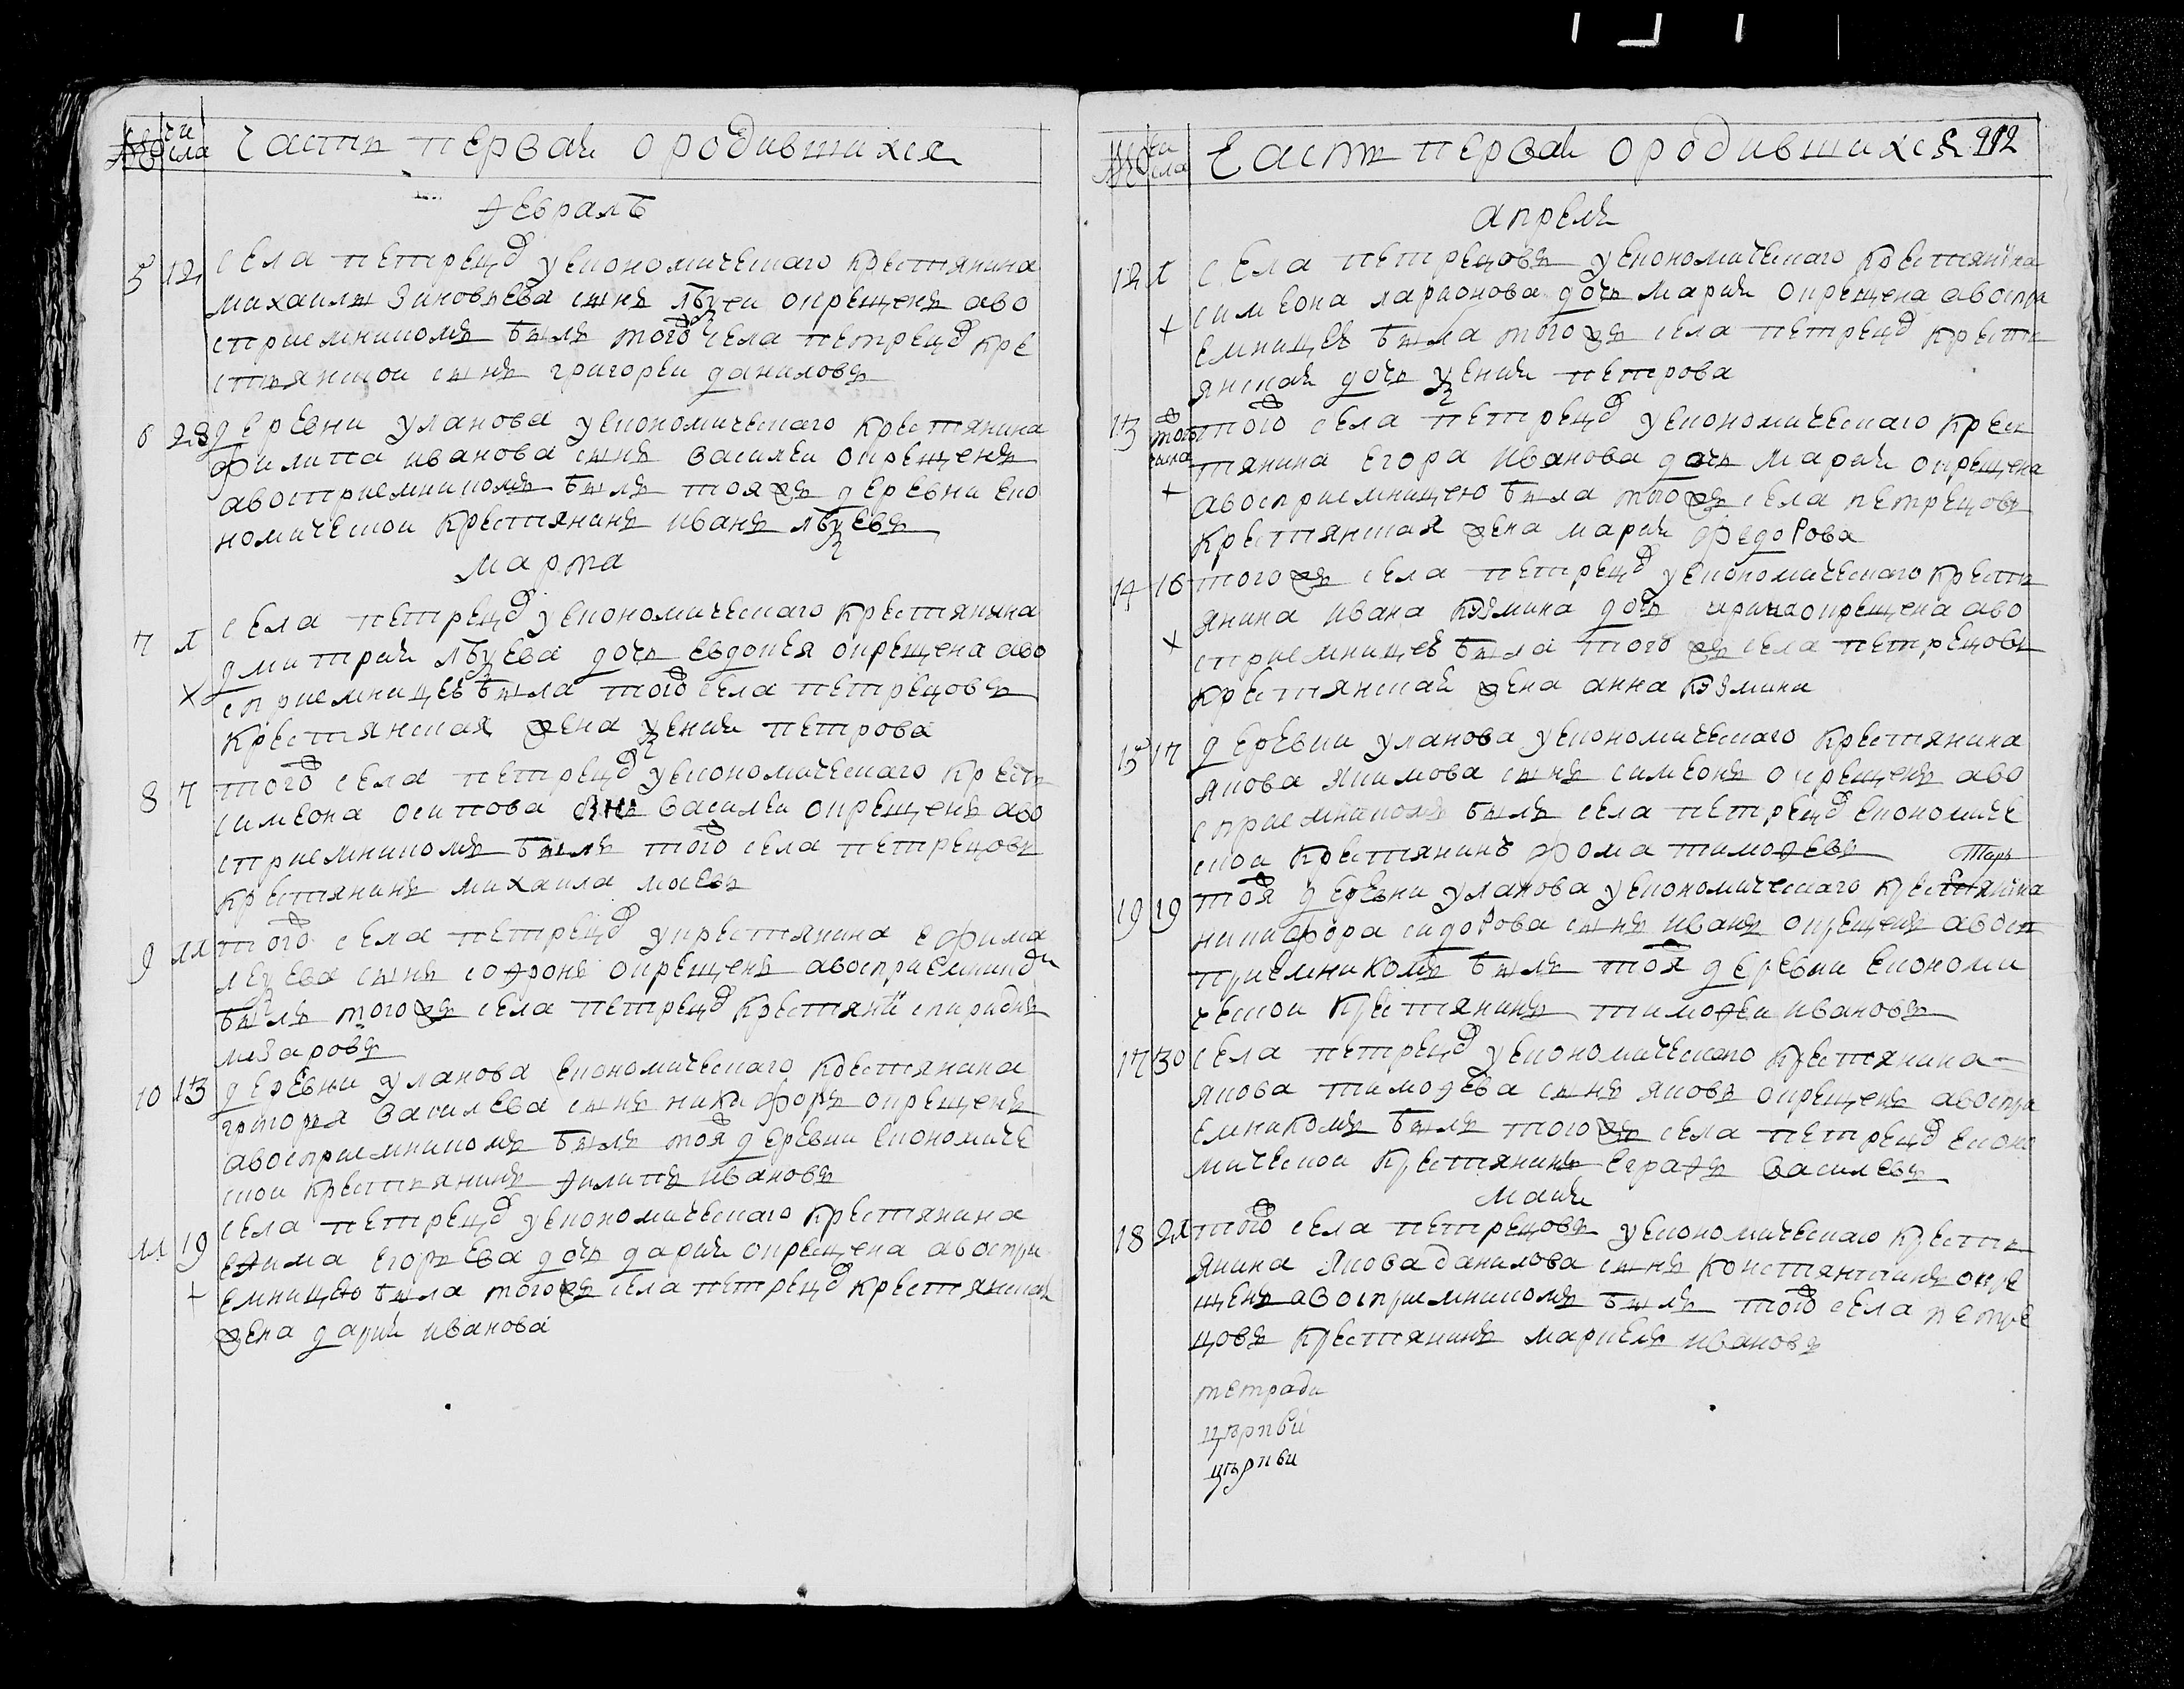 № числа Часть первая о родившихся
Февраль
5 12 села петрецов у економическаго крестянина
михаила Зиновьева сынъ опрещенъ аво
сприемникомъ былъ тогож села петрецов кре
стьянской сынъ григореи даниловъ
6 28 деревни уланова у економическаго крестянина
филипа иванова сынъ василеи опрещенъ
авосприемникомъ былъ тояжъ деревни еко
номической крестянинъ иванъ
марта
7 1 села петрецов у економическаго крестянина
дмитрия дочь евдокея опрещена аво
сприемницеѣ была тогож села петрецовъ
крестянская жена ѯения петрова
8 7 тогож села петрецов у економическаго крестя
симеона осипова василеи опрещенъ аво
сприемникомъ былъ тогож села петрецовъ
крестянинъ михаила
9 11 тогож села петрецов у крестянина ефима
сынъ софронъ опрещенъ авосприемником
былъ тогожъ села петрецов спиридонъ
10 13 деревни уланова економическаго крестянина
григорья василева сынъ никифоръ опрещенъ
авосприемникомъ былъ тояж деревни економиче
скои крестьянинъ филипъ ивановъ
11 19 села петрецов у економическаго крестянина
ефима егорьева дочь дария опрещена авоспри
емницею была тогожъ села петрецов крестянская
жена дария иванова
№ числа Часть первая о родившихся 212
апреля
12 1 села петрецовъ у економическаго крестянина
симеона ларионова дочь мария опрещена авоспри
емницеѣ была тогожъ села петрецов крестя
янская дочь ѯения петрова
13 тогож числа тогож села петрецов у економическаго крес
тянина егора иванова дочь мария опрещена
авосприемницею была тогожъ села петрецовъ
крестянская жена мария федорова
14 16 тогожъ села петрецов у економическаго крестья
янина ивана козмина дочь ирина опрещена аво
сприемницеѣ была тогожъ села петрецовъ
крестянская жена анна козмина
15 17 деревни уланова у економическаго крестянина
якова якимова сынъ симеонъ опрещенъ аво
сприемникомъ былъ села петрецов економиче
скои крестянинъ фома тимофеевъ
19 19 тояж деревни уланова у економическаго крестянина
никифора сидорова сынъ иванъ опрещенъ авосп
приемникомъ былъ тояж деревни економи
ческои крестянинъ тимофеи ивановъ
17 30 села петрецов у економическаго крестянина
якова тимофева сынъ яковъ опрещенъ авоспри
емникомъ былъ тогожъ села петрецов еконо
мическои крестянинъ василевъ
мая
18 21 тогож села петрецовъ у економическаго крестья
янина якова данилова сынъ констянтинъ опре
щенъ авосприемникомъ былъ тогож села петре
цовъ крестянинъ маркелъ ивановъ
тетради
църкви
църкви